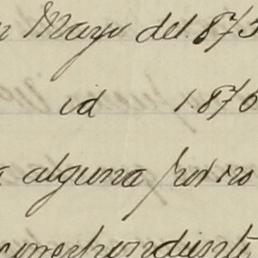 Mayo del 873
id 1.876
alguna por no
correspondiente